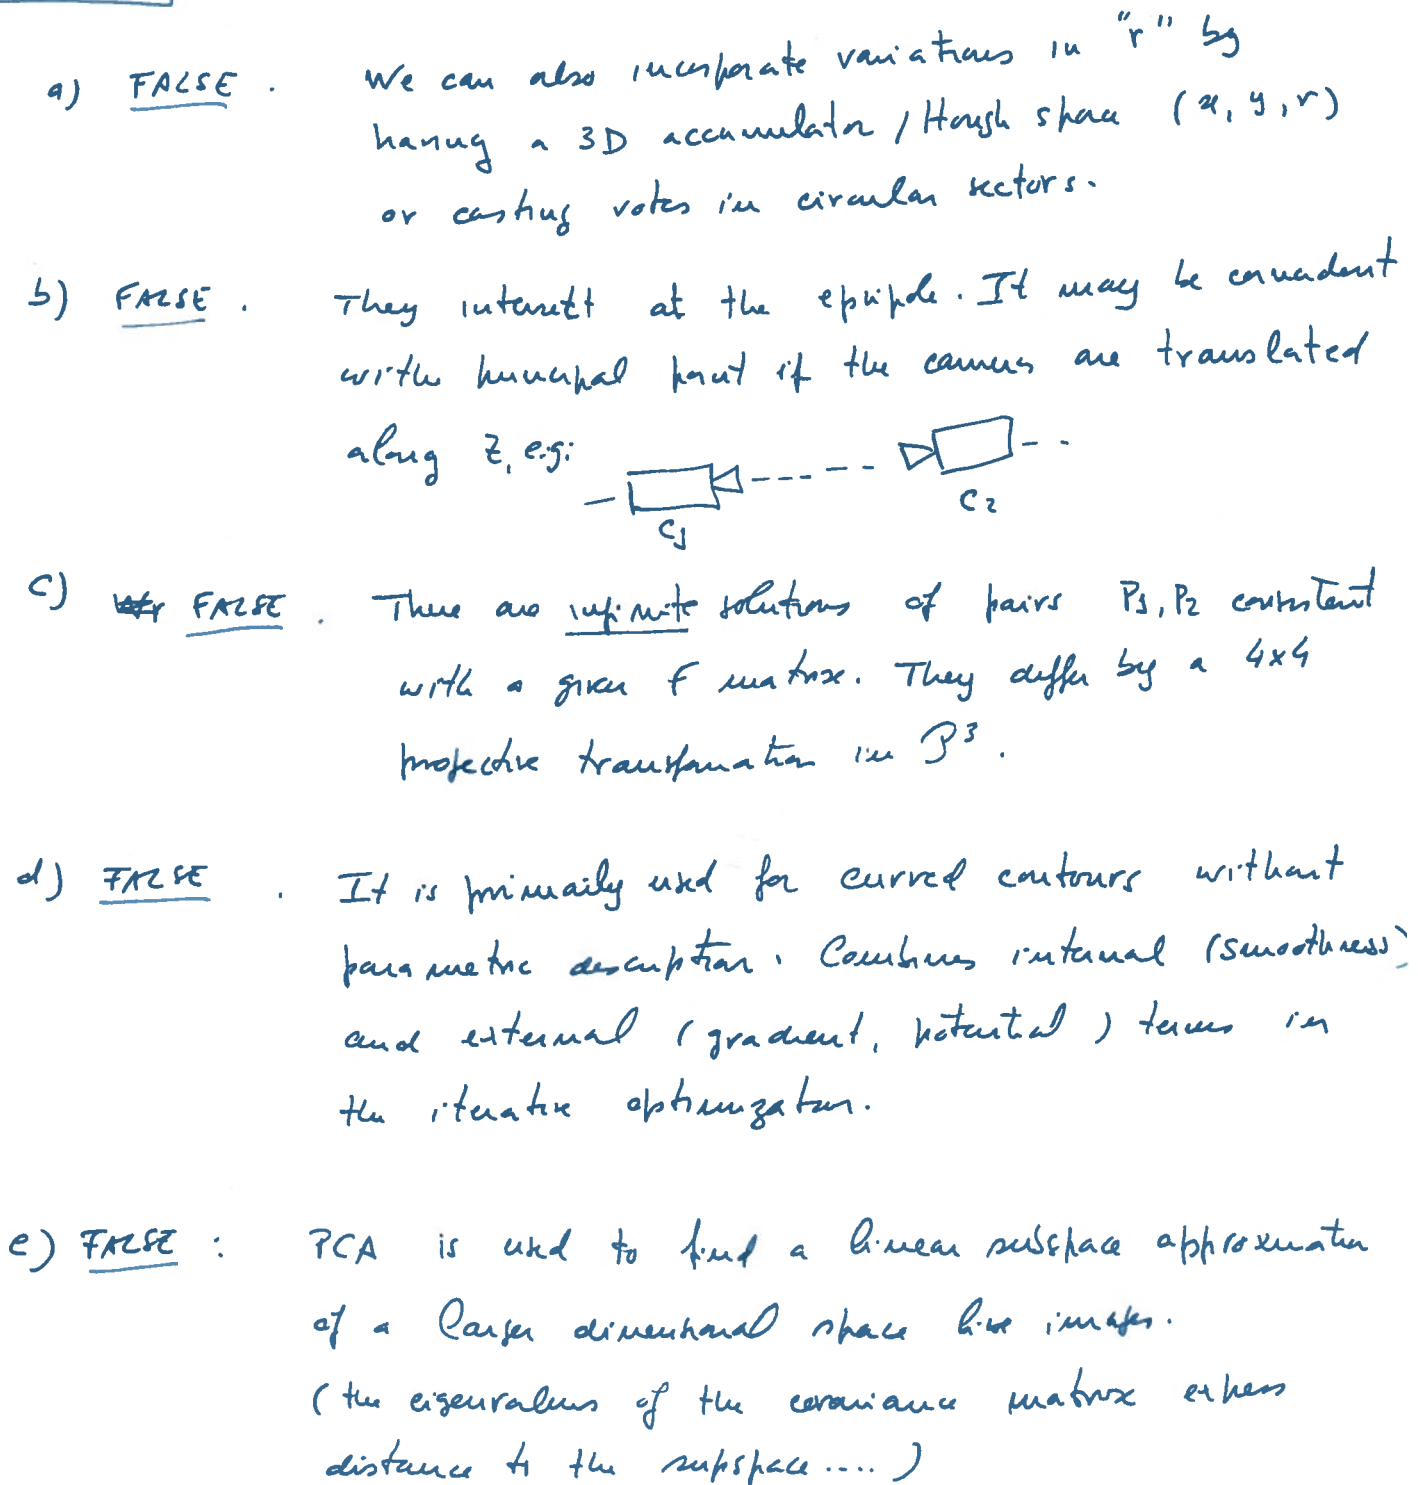 a) FALSE . We can also incorporate variations in "r" by
having a 3D accumulator / Hough space (x, y, r)
or casting votes in circular sectors.
b) FALSE . They intersect at the epipole. It may be
with principal point if the cameras are translated
along Z, e.g:
C1
C2
c) FALSE . There are infinite solutions of pairs P1, P2 consistent
with a given F matrix. They differ by a 4x4
projective transformation in P3.
d) FALSE . It is primarily used for curved contours without
parametric description. Combines internal (smoothness)
and external (gradient, potential) terms in
the iterative optimization.
e) FALSE : PCA is used to find a linear subspace approximation
of a larger dimensional space like images.
(the eigenvalues of the covariance matrix express
distance to the supspace .... )